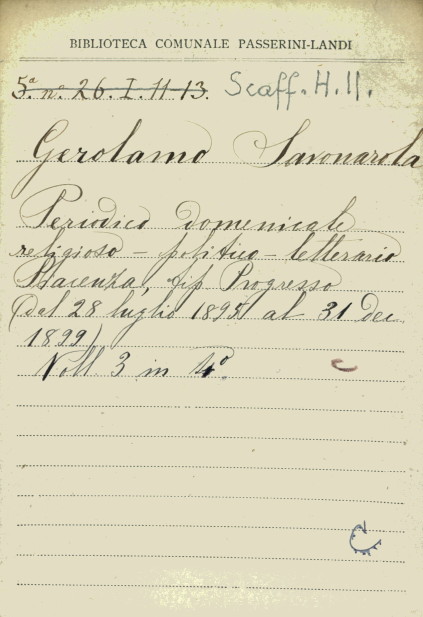 BIBLIOTECA COMUNALE PASSERINI-LANDI
5.ª nº 26. I. 11-13. Scaff. H. 11.
Gerolamo Savonarola
Periodico domenicale
religioso - politico - letterario
Piacenza, tip Progresso
(dal 28 luglio 1895 al 31 dec
1899)
Voll 3 in 4º.